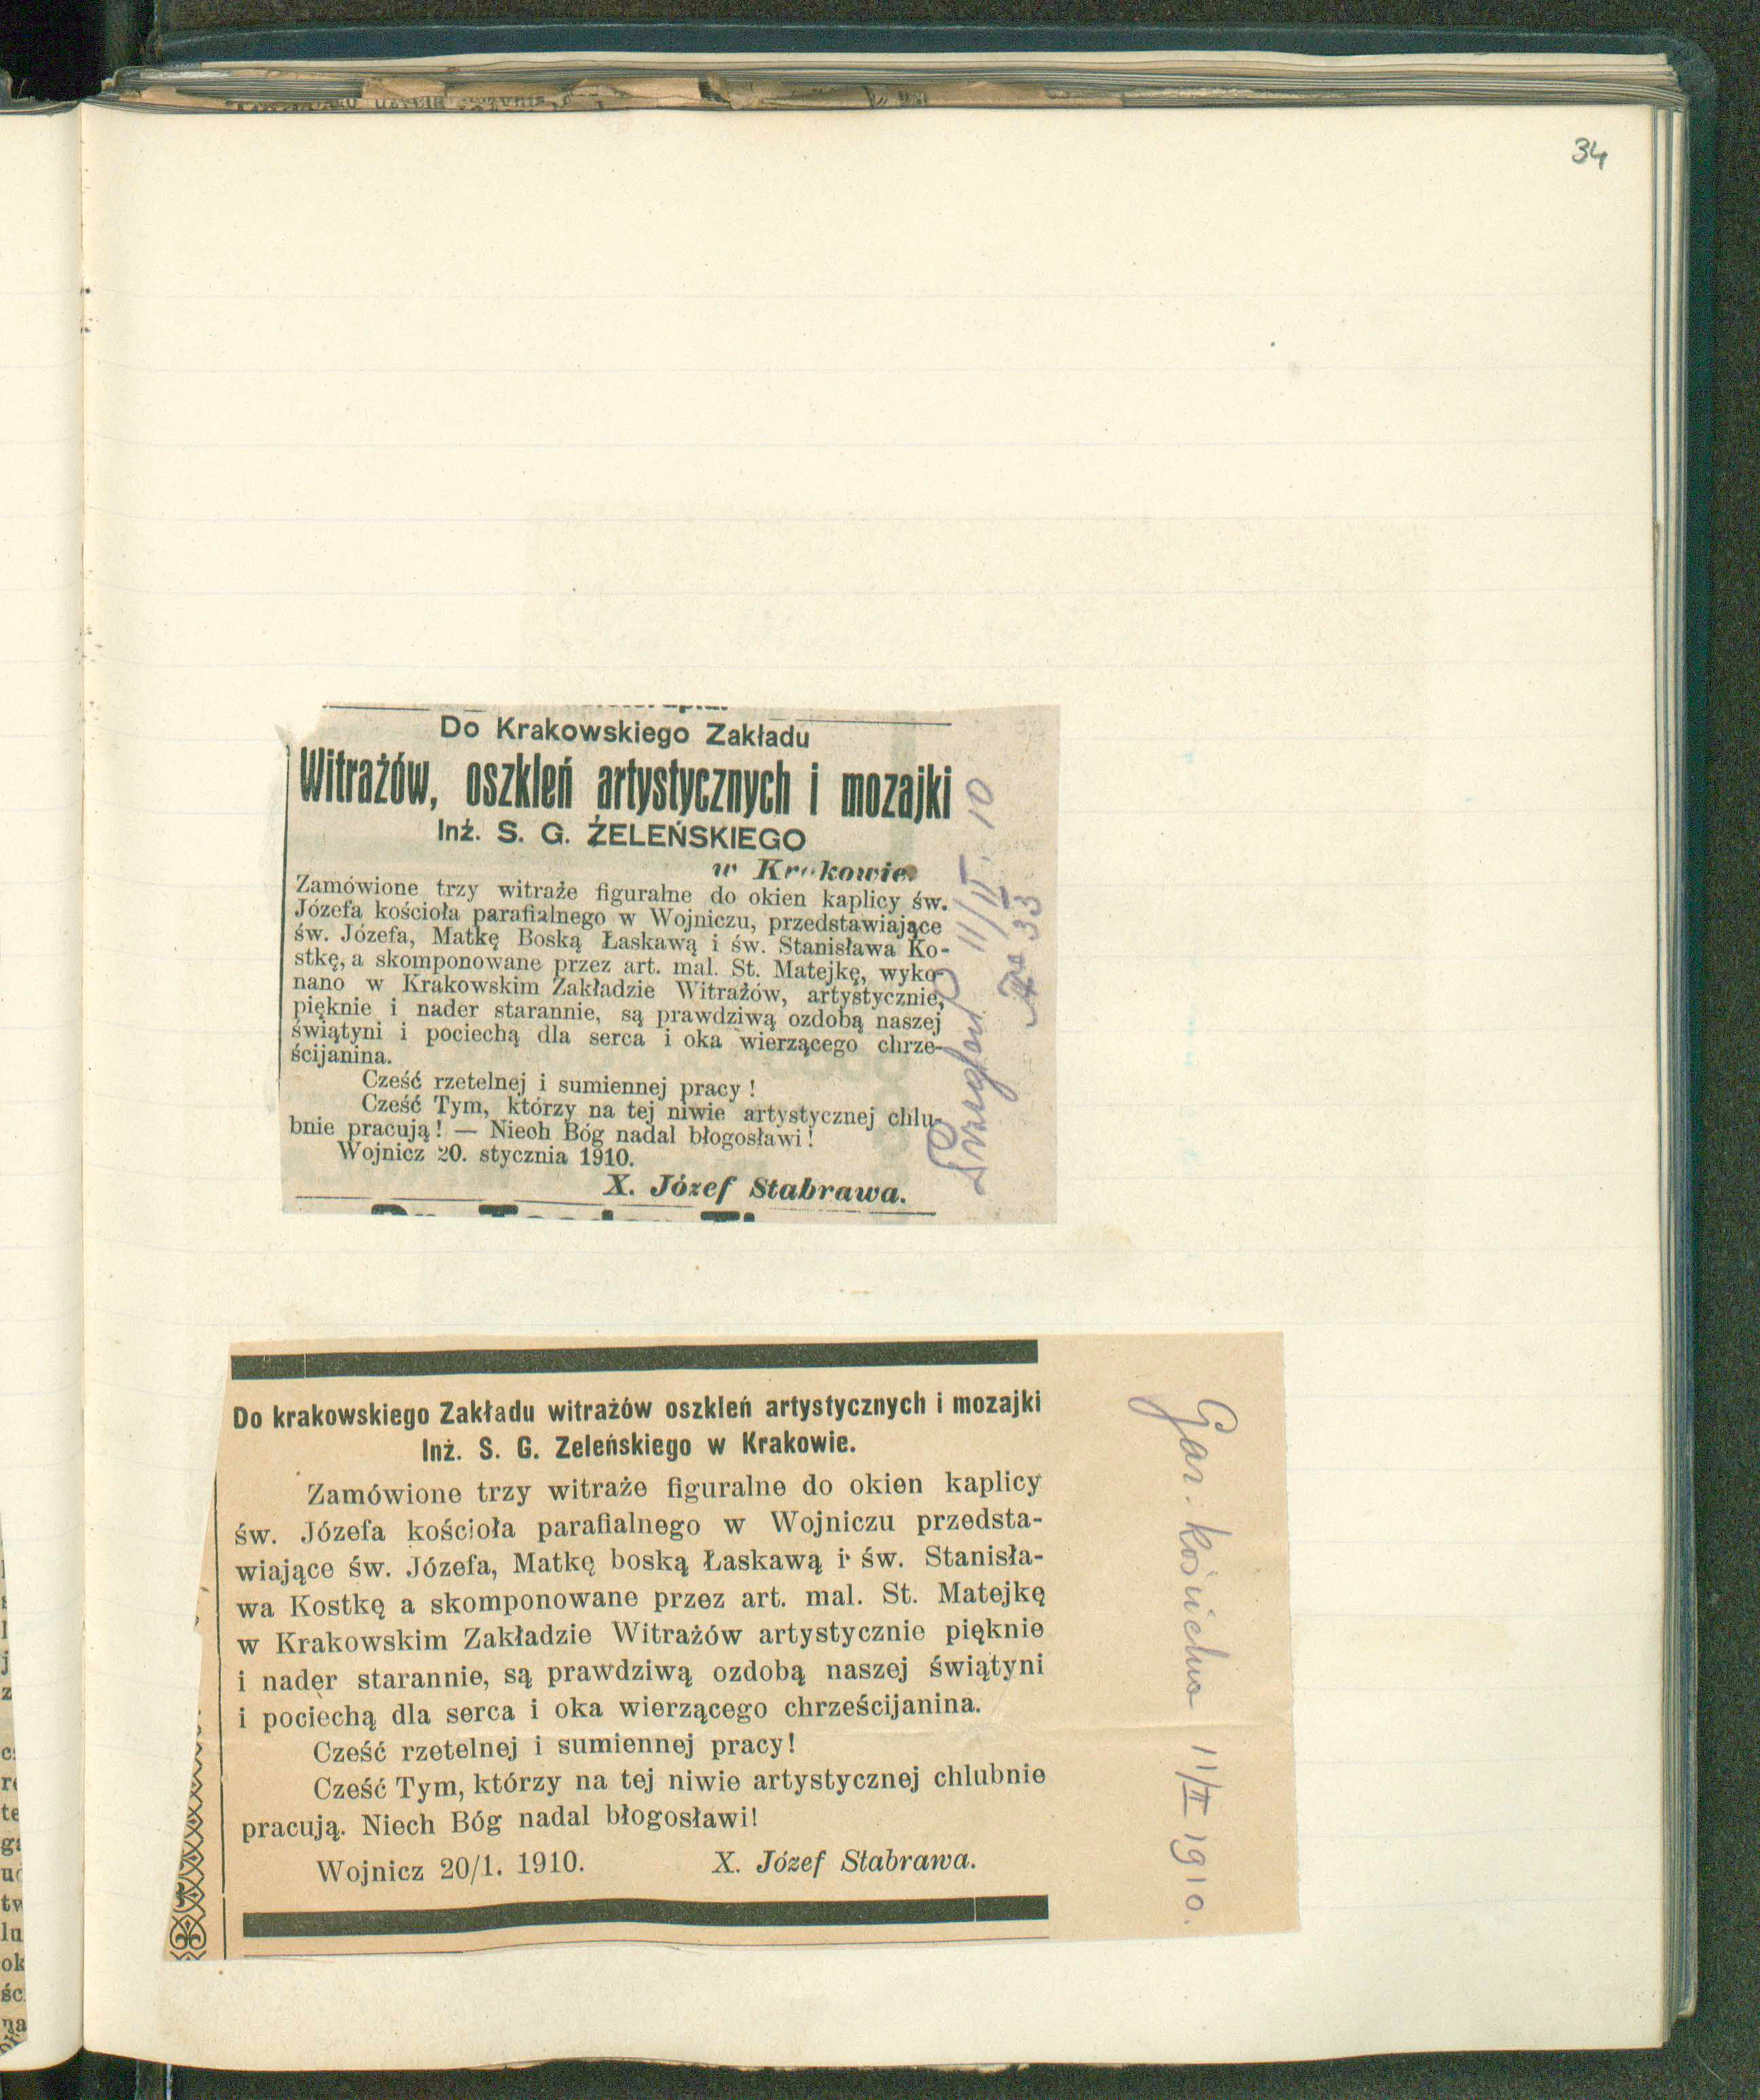 34
Do Krakowskiego Zakładu
Witrażów, oszkleń artystycznych i mozajki
Inż. S. G. ŻELEŃSKIEGO
w Krakowie.
Zamówione trzy witraże figuralne do okien kaplicy św.
Józefa kościoła parafialnego w Wojniczu, przedstawiające
św. Józefa, Matkę Boską Łaskawą i św. Stanisława Ko-
stkę, a skomponowane przez art. mal. St. Matejkę, wyko-
nano w Krakowskim Zakładzie Witrażów, artystycznie,
pięknie i nader starannie, są prawdziwą ozdobą naszej
świątyni i pociechą dla serca i oka wierzącego chrze-
ścijanina.
Cześć rzetelnej i sumiennej pracy!
Cześć Tym, którzy na tej niwie artystycznej chlu-
bnie pracują! — Niech Bóg nadal błogosławi!
Wojnicz 20. stycznia 1910.
X. Józef Stabrawa.
Przegląd 11/II. 10
33
Do krakowskiego Zakładu witrażów oszkleń artystycznych i mozajki
Inż. S. G. Zeleńskiego w Krakowie.
Zamówione trzy witraże figuralne do okien kaplicy
św. Józefa kościoła parafialnego w Wojniczu przedsta-
wiające św. Józefa, Matkę boską Łaskawą i św. Stanisła-
wa Kostkę a skomponowane przez art. mal. St. Matejkę
w Krakowskim Zakładzie Witrażów artystycznie pięknie
i nader starannie, są prawdziwą ozdobą naszej świątyni
i pociechą dla serca i oka wierzącego chrześcijanina.
Cześć rzetelnej i sumiennej pracy!
Cześć Tym, którzy na tej niwie artystycznej chlubnie
pracują. Niech Bóg nadal błogosławi!
Wojnicz 20/1. 1910. X. Józef Stabrawa.
Gaz. kościelna 11/II 1910.